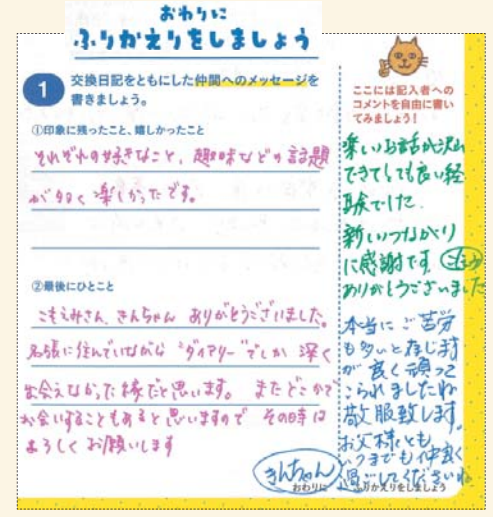 おわりに
ふりかえりをしましょう
1
交換日記をともにした仲間へのメッセージを
書きましょう。
①印象に残ったこと、嬉しかったこと
それぞれの好きなこと、趣味などの話題
が多く楽しかったです。
②最後にひとこと
こもえみさん、きんちゃん ありがとうございました。
名張に住んでいながら "ダイアリー"でしか 深く
お会えなかった様だと思います。 またどこかで
お会いすることもあると思いますので その時は
よろしくお願いします
ここには記入者への
コメントを自由に書い
てみましょう!
楽しいお話が沢山
できてとても良い経
験でした。
新しいつながり
に感謝です。
ありがとうございました
本当にご苦労
も多いと存じます
が良く頑張って
こられましたね
敬服致します。
お父様とも
いつまでも仲良く
過ごしてくださいね
きんちゃん
おわりに
ふりかえりをしましょう